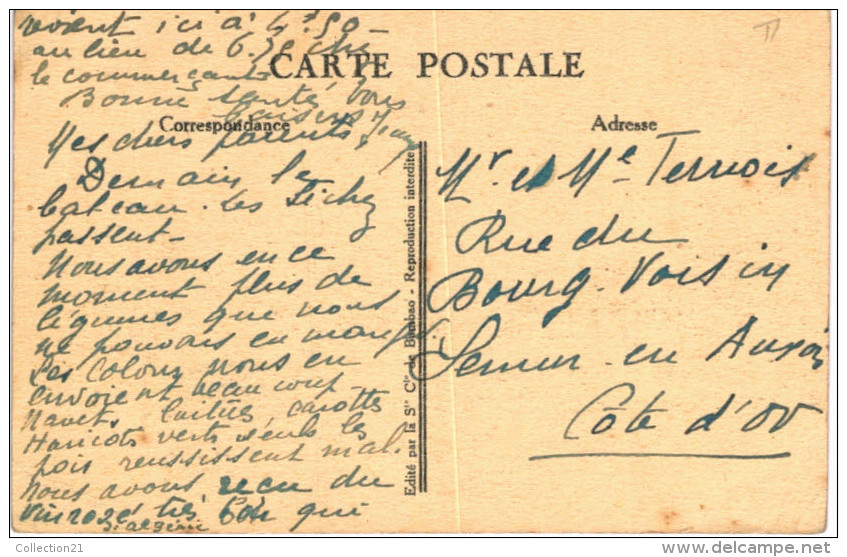 revient ici à 4f50
au lieu de 6.75 chez
le commerçants
Bonne santé, bons
baisers
CARTE POSTALE
Correspondance
Adresse
Mes chers parents
Demain le
bateau. Les Fichez
passent -
Nous avons en ce
moment plus de
légumes que nous
ne pouvons en manger
Les colons nous en
envoient beaucoup -
Navets, laitues, carottes
Haricots verts seuls les
pois reussissent mal.
Nous avons reçu du
vin rosé très bon qui
d'algérie
Edité par la Sté Cie de Bambao - Reproduction interdite
Mr et Me Ternois
Rue du
Bourg-Voisin
Semur en Auxois
Côte d'Or
Collection21
http://www.delcampe.net